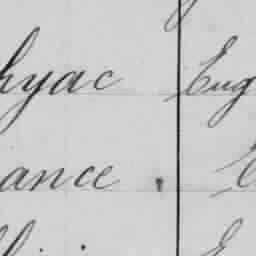 hyac Eug
ance. E